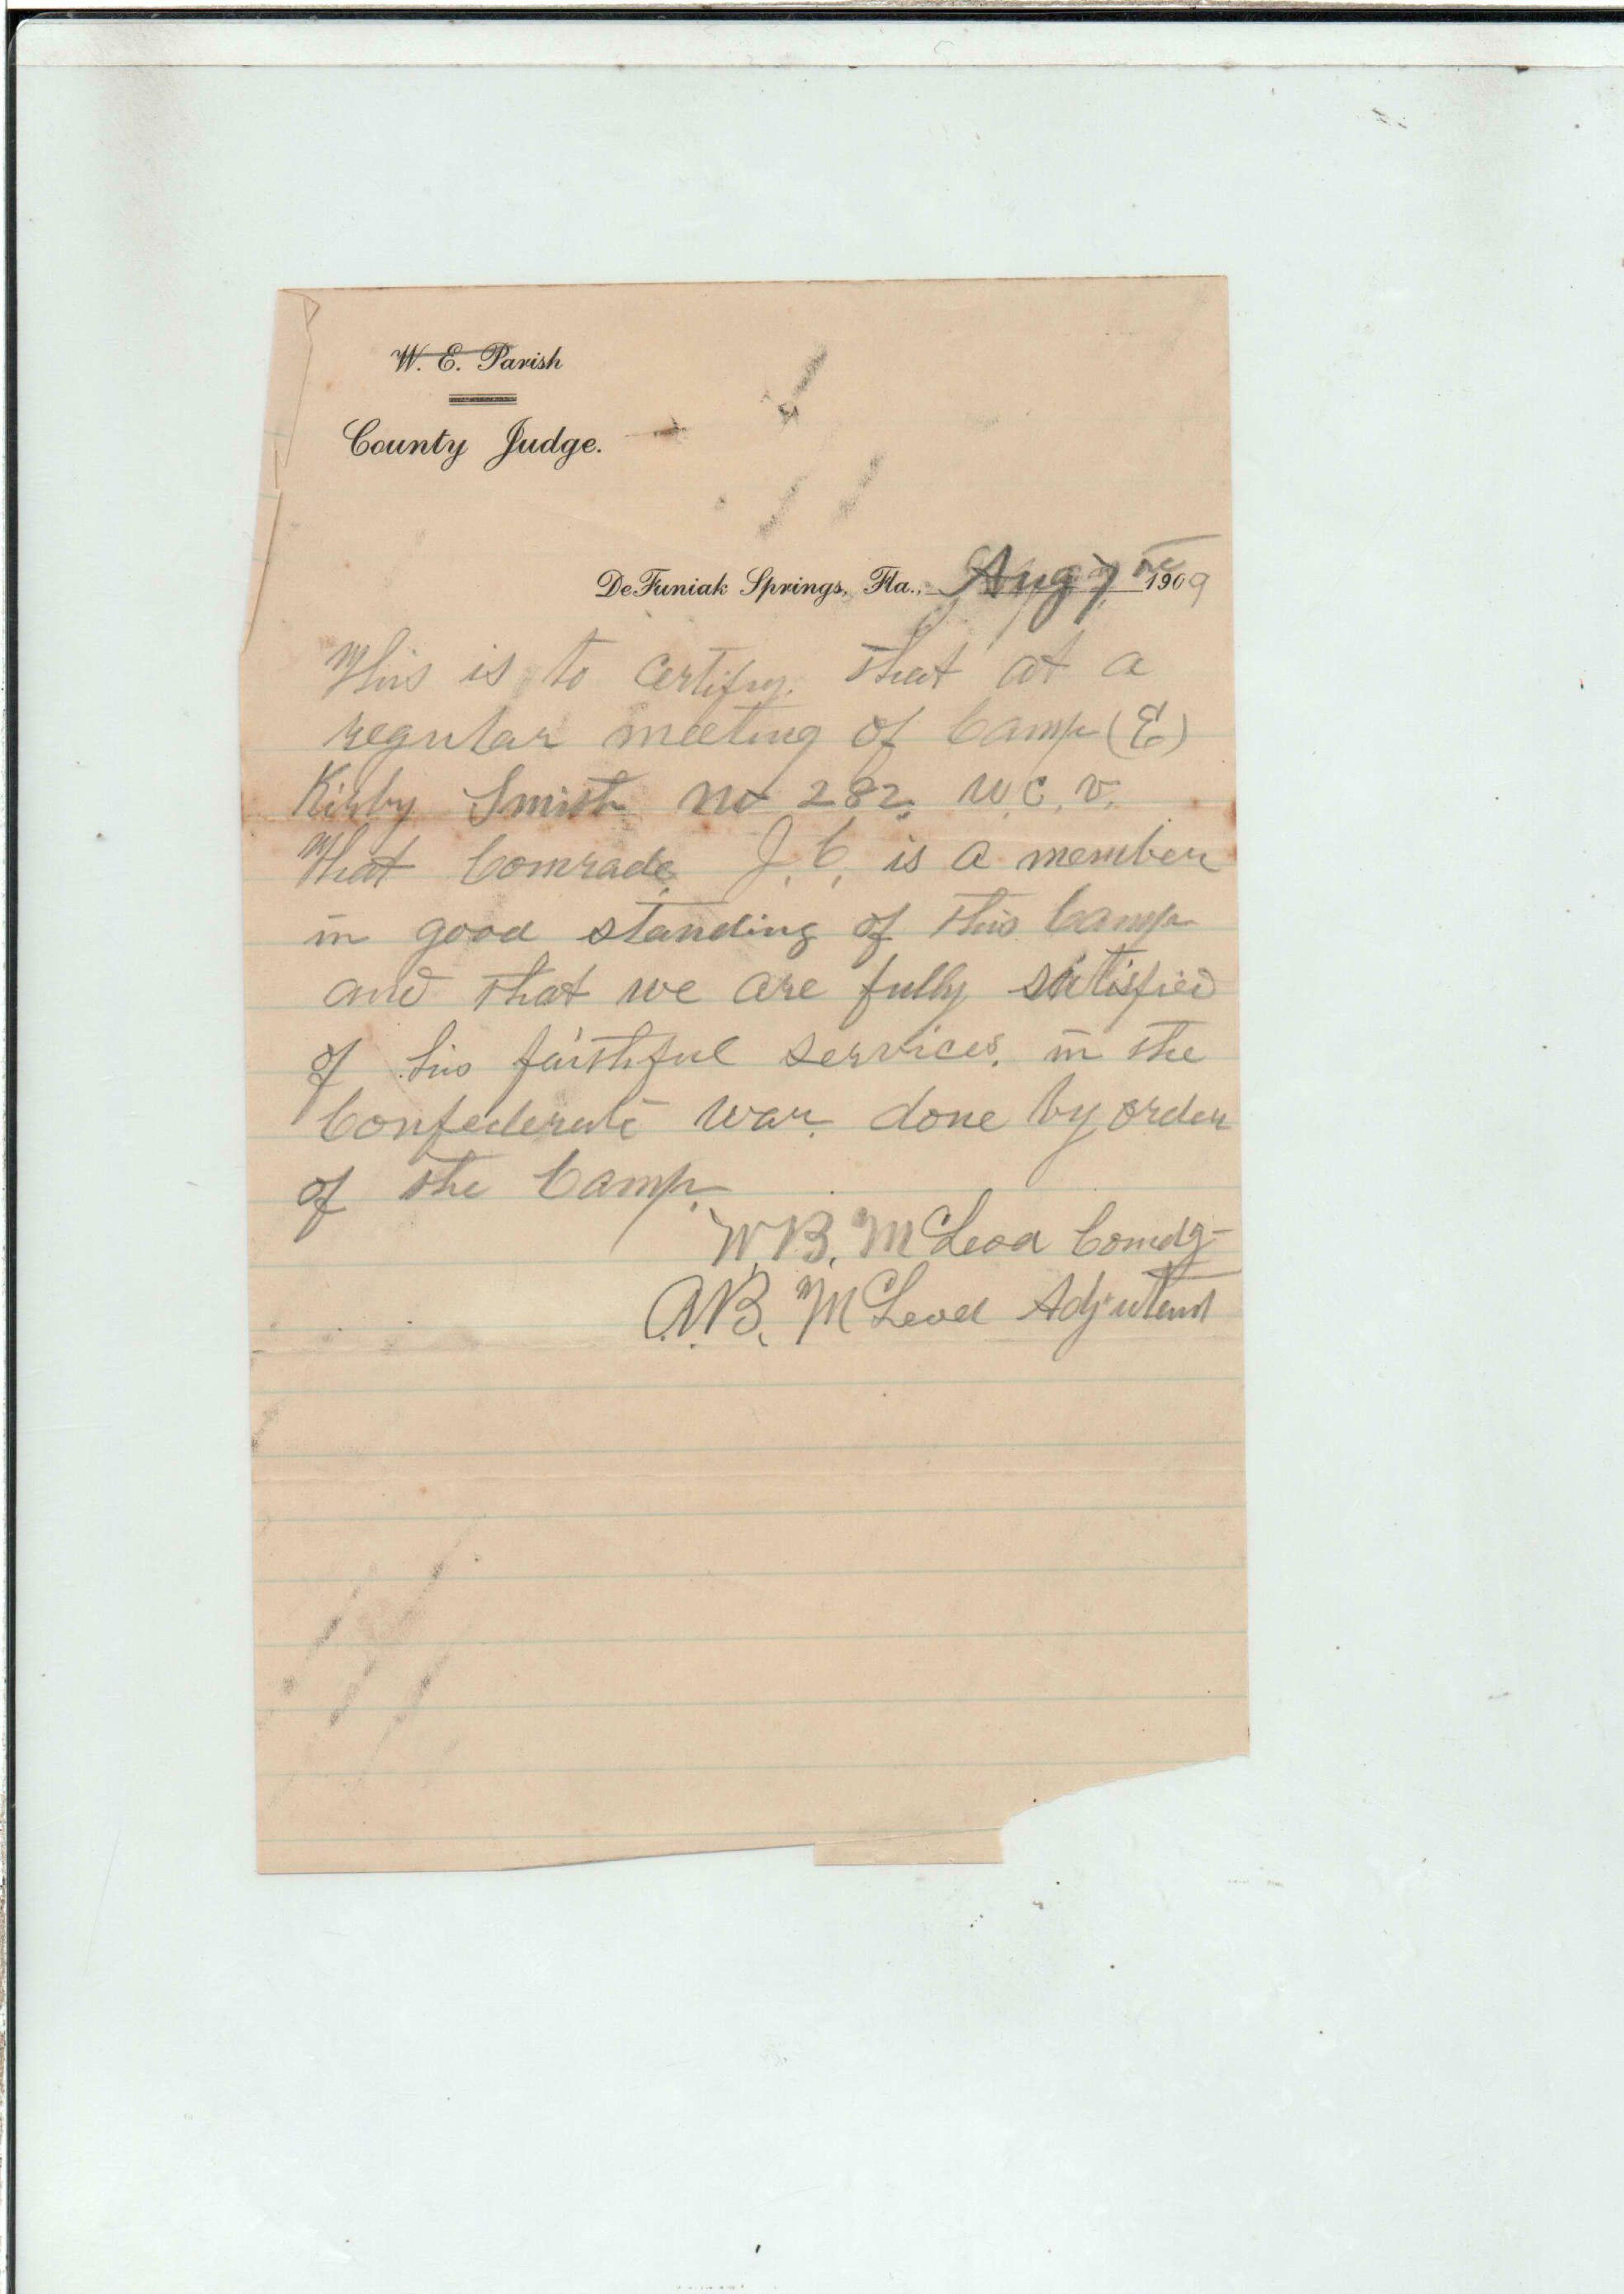 W. E. Parish
County Judge.
De Funiak Springs, Fla., Aug 7 1909
This is to certify. that at a
regular meeting of Camp (E)
Kirby Smith No 282. U.C.V.
That Comrade J.C. is a member
in good standing of this Camp
and that we are fully satisfied
of his faithful services. in the
Confederate war. done by order
of the Camp.
W.B. McLeod Comdg
A.B. McLeod Adjutant